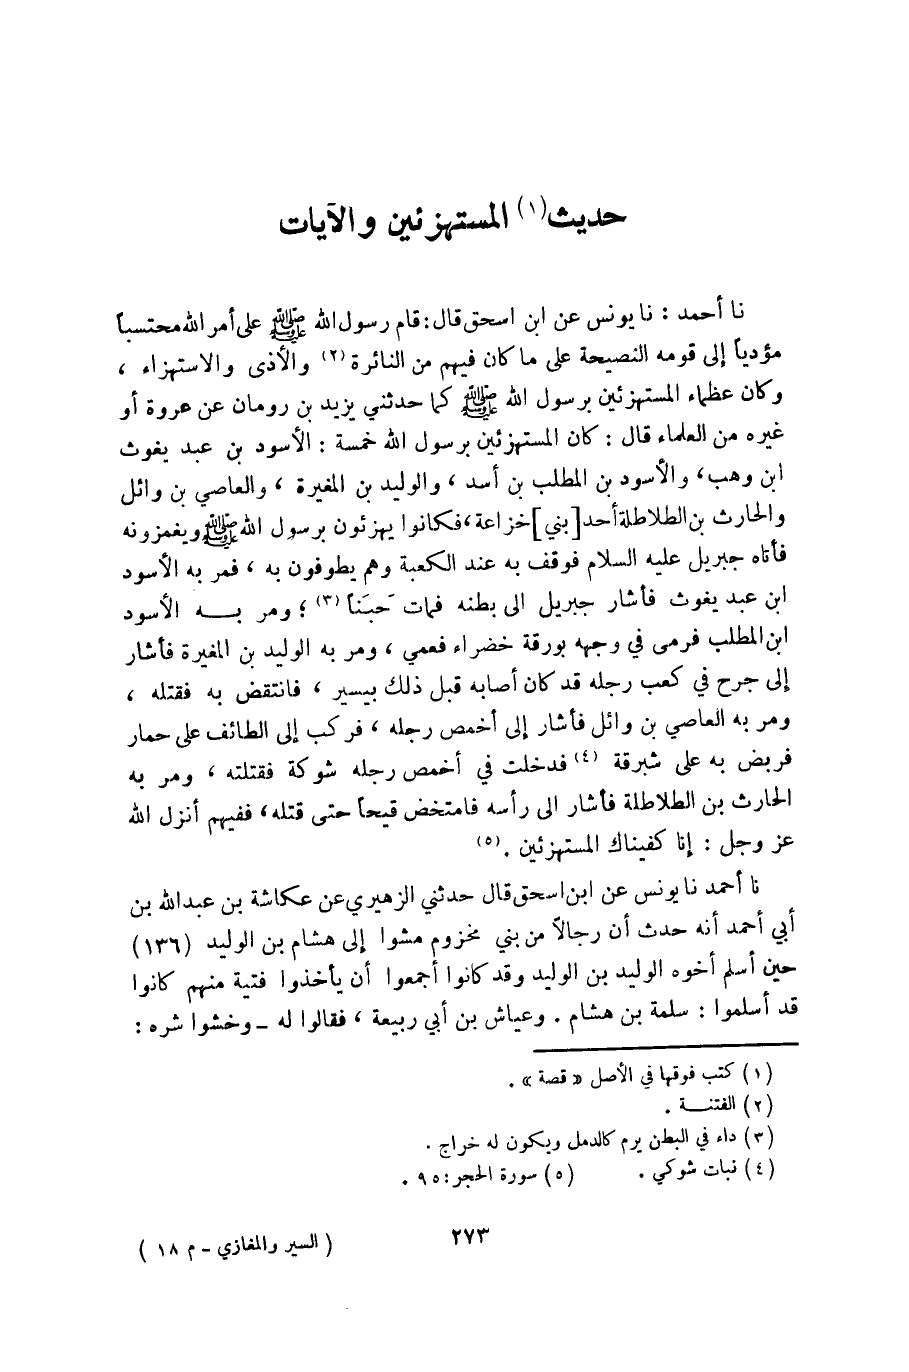 حديث(١) المستهزئين والآيات
نا أحمد : نا يونس عن ابن اسحق قال: قام رسول الله ﷺ على أمر الله محتسباً
مؤدياً إلى قومه النصيحة على ما كان فيهم من النائرة (٢) والأذى والاستهزاء ،
وكان عظماء المستهزئين برسول الله ﷺ كما حدثني يزيد بن رومان عن عروة أو
غيره من العلماء قال : كان المستهزئين برسول الله خمسة : الأسود بن عبد يغوث
ابن وهب، والأسود بن المطلب بن أسد ، والوليد بن المغيرة ، والعاصي بن وائل
والحارث بن الطلاطلة أحد [بني] خزاعة، فكانوا يهزئون برسول الله ﷺ ويغمزونه
فأتاه جبريل عليه السلام فوقف به عند الكعبة وهم يطوفون به ، فمر به الأسود
ابن عبد يغوث فأشار جبريل الى بطنه فمات حَبَناً (٣) ؛ ومر بـــه الأسود
ابن المطلب فرمى في وجهه بورقة خضراء فعمي ، ومر به الوليد بن المغيرة فأشار
إلى جرح في كعب رجله قد كان أصابه قبل ذلك بيسير ، فانتقض به فقتله ،
ومر به العاصي بن وائل فأشار إلى أخمص رجله ، فركب إلى الطائف على حمار
فربض به على شبرقة (٤) فدخلت في أخمص رجله شوكة فقتلته ، ومر به
الحارث بن الطلاطلة فأشار الى رأسه فامتخض قيحاً حتى قتله، ففيهم أنزل الله
عز وجل : إنا كفيناك المستهزئين .(٥)
نا أحمد نا يونس عن ابن اسحق قال حدثني الزهيري عن عكاشة بن عبدالله بن
أبي أحمد أنه حدث أن رجالاً من بني مخزوم مشوا إلى هشام بن الوليد (١٣٦)
حين أسلم أخوه الوليد بن الوليد وقد كانوا أجمعوا أن يأخذوا فتية منهم كانوا
قد أسلموا : سلمة بن هشام . وعياش بن أبي ربيعة ، فقالوا له - وخشوا شره :
(١) كتب فوقها في الأصل « قصة » .
(٢) الفتنــة .
(٣) داء في البطن يرم كالدمل ويكون له خراج .
(٤) نبات شوكي . (٥) سورة الحجر: ٩٥ .
٢٧٣ ( السير والمغازي - م ١٨ )